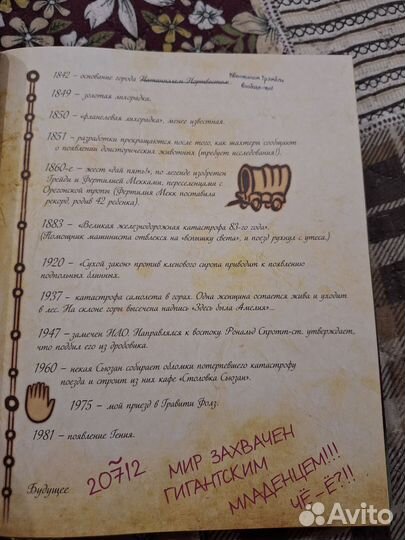 1842 – основание города Натаниэлем Нортвестом. Квентином Трэмбли
1849 – золотая лихорадка.
1850 – «фланелевая лихорадка», менее известная.
1851 – разработки прекращаются после того, как шахтеры сообщают
о появлении доисторических животных (требует исследования!).
1860-е – жест «дай пять!», по легенде изобретен
Грейди и Фертилией Мекками, переселенцами с
Орегонской тропы (Фертилия Мекк поставила
рекорд, родив 42 ребенка).
1883 – «Великая железнодорожная катастрофа 83-го года».
(Помощник машиниста отвлекся на «вспышку света», и поезд рухнул с утеса.)
1920 – «Сухой закон» против кленового сиропа приводит к появлению
подпольных блинных.
1937 – катастрофа самолета в горах. Одна женщина остается жива и уходит
в лес. На склоне горы высечена надпись «Здесь была Амелия»...
1947 – замечен НЛО. Направлялся к востоку. Рональд Спротт-ст. утверждает,
что подбил его из дробовика.
1960 – некая Сьюзан собирает обломки потерпевшего катастрофу
поезда и строит из них кафе «Столовка Сьюзан».
1975 – мой приезд в Гравити Фолз.
1981 – появление Гения.
Будущее
207~12 МИР ЗАХВАЧЕН
ГИГАНТСКИМ
МЛАДЕНЦЕМ!!!
ЧЁ-Ё?!!
Avito